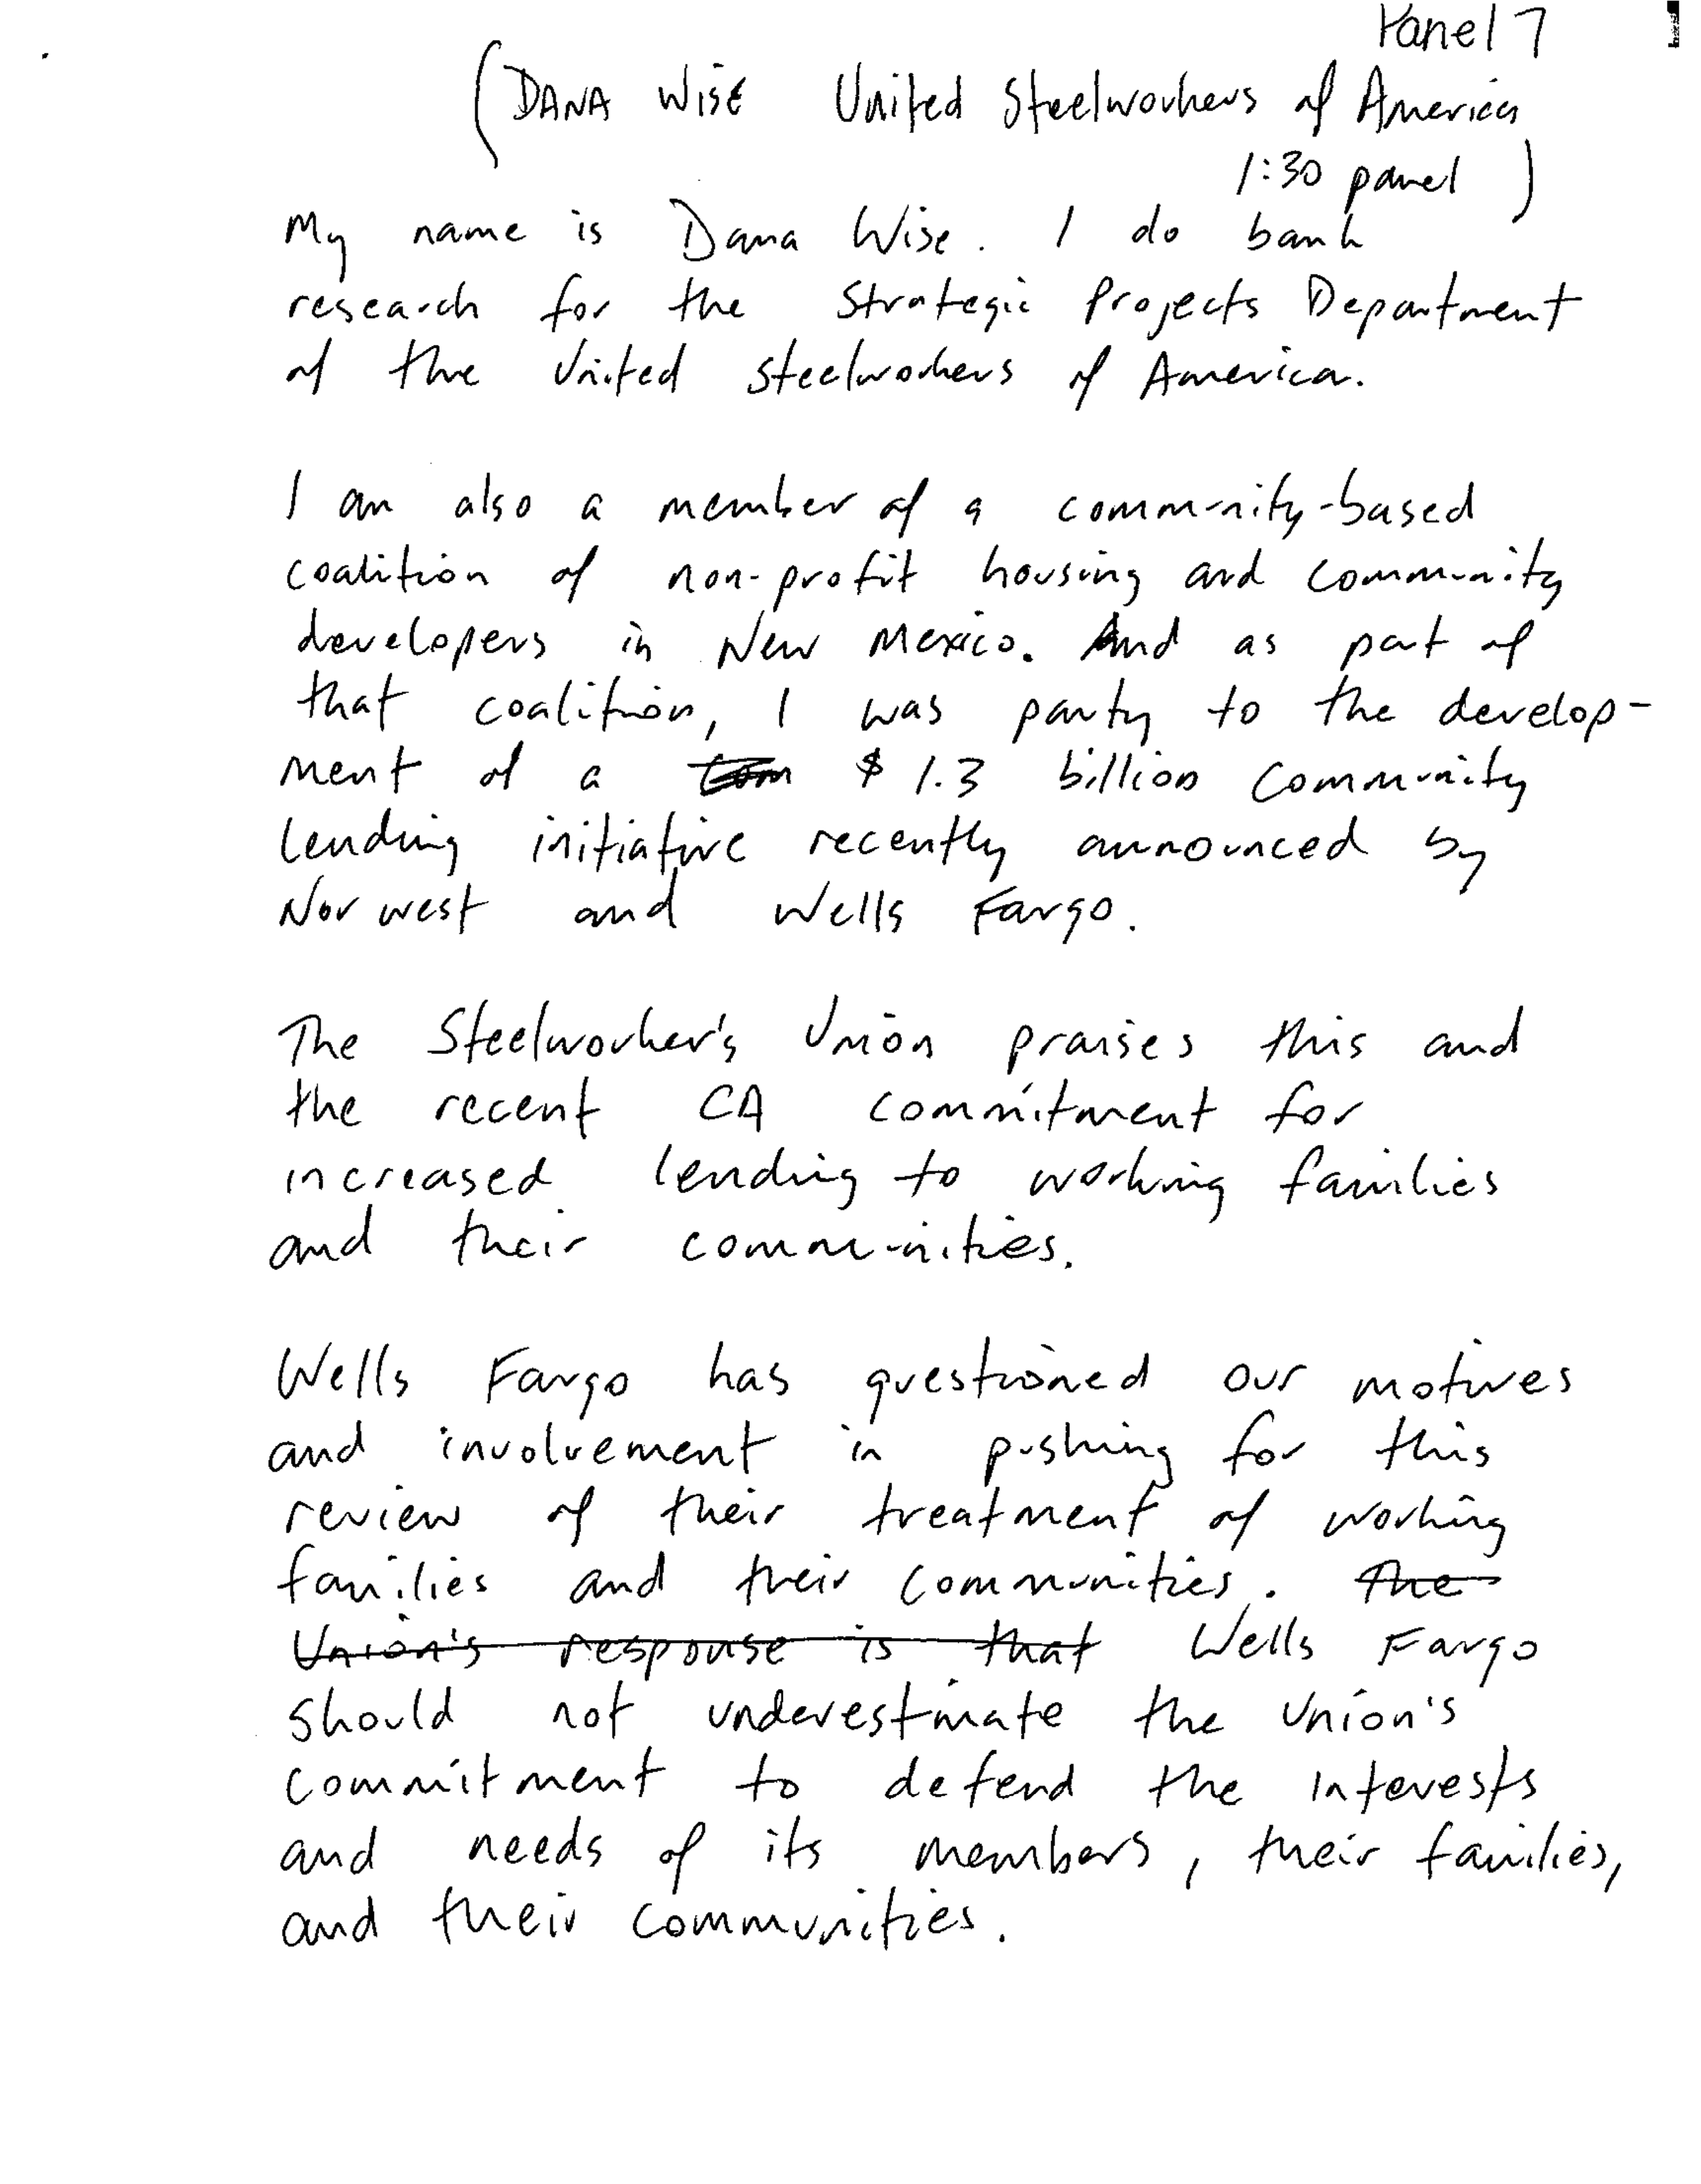 Panel 7
(DANA WISE United Steelworkers of America
1:30 panel )
My name is Dana Wise. I do bank
research for the Strategic Projects Department
of the United Steelworkers of America.
I am also a member of a community-based
coalition of non-profit housing and community
developers in New Mexico. And as part of
that coalition, I was party to the develop-
ment of a ~~Com~~ $1.3 billion community
lending initiative recently announced by
Norwest and Wells Fargo.
The Steelworker's Union praises this and
the recent CA commitment for
increased lending to working families
and their communities.
Wells Fargo has questioned our motives
and involvement in pushing for this
review of their treatment of working
families and their communities. ~~The~~
~~Union's response is that~~ Wells Fargo
should not underestimate the Union's
commitment to defend the interests
and needs of its members, their families,
and their communities.